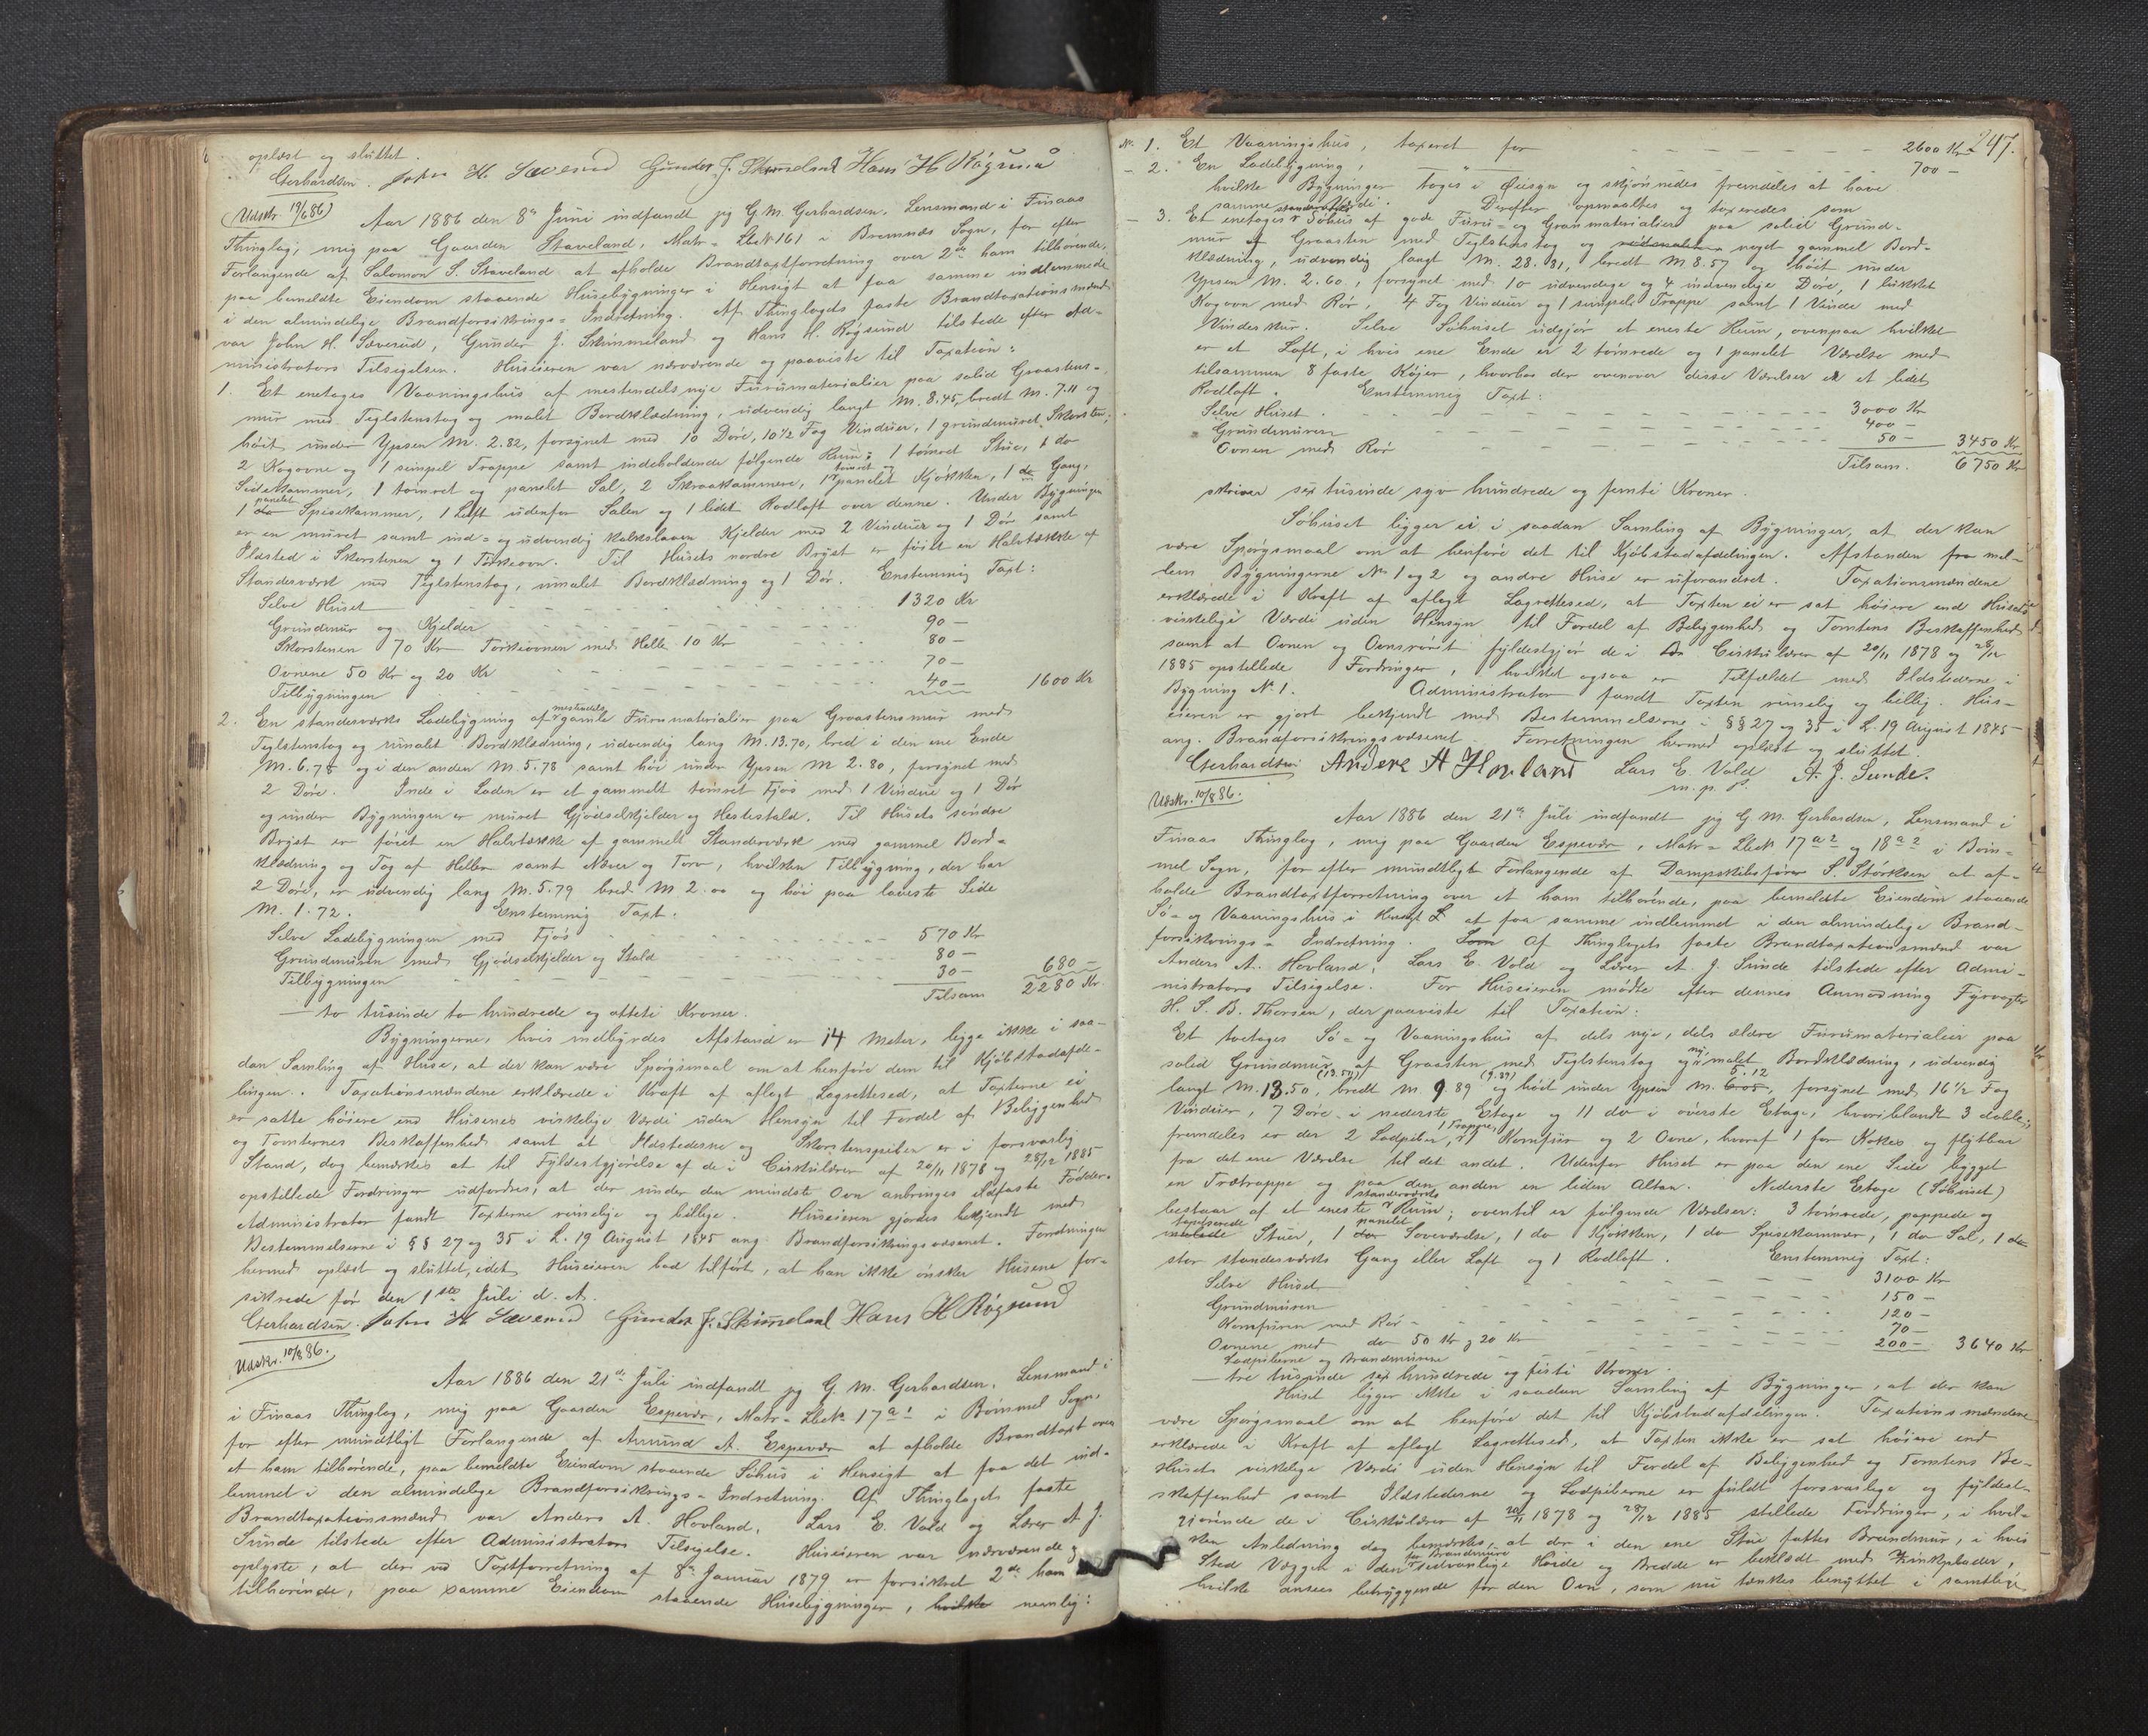 oplæst og sluttet.
Gerhardsen. John H. Sæverud Gunder J. Skimmeland Hans H Røgsund
(Udskr. 19/6 86)
Aar 1886 den 8de Juni indfandt jeg G. M. Gerhardsen, Lensmand i Finaas
Thinglag, mig paa Gaarden Staveland, Matr-LbeN 161 i Bremnes Sogn, for efter
Forlangende af Salomon S. Staveland at afholde Brandtaxtforretning over 2de ham tilhørende,
paa bemeldte Eiendom staaende Husebygninger i Hensigt at faa samme indlemmede
i den almindelige Brandforsikrings-Indretning. Af Thinglagets faste Brandtaxationsmænd
var John H. Sæverud, Gunder J. Skimmeland og Hans H. Røgsund tilstede efter Ad-
ministrators Tilsigelsen. Huseieren var nærværende og paaviste til Taxation:
1. Et enetages Vaaningshus af mestendels nye Furumaterialier paa solid Graastens-
mur med Teglstenstag og malet Bordklædning, udvendig langt M. 8.45, bredt M. 7.11 og
høit under Ypsen M. 2.82, forsynet med 10 Døre, 10 1/2 Fag Vinduer, 1 grundmuret Skorsten,
2 Kogovne og 1 simpel Trappe samt indeholdende følgende Rum: 1 tømret Stue, 1 do
Sidekammer, 1 tømret og panelet Sal, 2 Skraakammere, 1 tømret og panelet Kjøkken, 1 do Gang,
1 do panelet Spisekammer, 1 Loft udenfor Salen og 1 lidet Rodloft over denne. Under Bygningen
er en muret samt ind- og udvendig kalkslagen Kjelder med 2 Vinduer og 1 Dør samt
Ildsted i Skorstenen og 1 Tørkeovn. Til Husets nordre Bryst er føiet en Halvtække af
Standerværk med Teglstenstag, umalet Bordklædning og 1 Dør. Enstemmig Taxt:
Selve Huset 1320 Kr
Grundmur og Kjelder 90 —
Skorstenen 70 Kr Tørkeovnen med Helle 10 Kr 80 —
Ovnene 50 Kr og 20 Kr 70 —
Tilbygningen 40 — 1600 Kr
2. En standerværks Ladebygning af mestendels gamle Furumaterialier paa Graastensmur med
Teglstenstag og umalet Bordklædning, udvendig lang M. 13.70, bred i den ene Ende
M. 6.78 og i den anden M. 5.78 samt høi under Ypsen M 2.80, forsynet med
2 Døre. Inde i Laden er et gammelt tømret Fjøs med 1 Vindue og 1 Dør
og under Bygningen er muret Gjødselkjelder og Hestestald. Til Husets søndre
Bryst er føiet en Halvtække af gammelt Standerværk med gammel Bord-
klædning og Tag af Heller samt Næver og Torv, hvilken Tilbygning, der har
2 Døre, er udvendig lang M. 5.79 bred M 2.00 og høi paa laveste Side
M. 1.72. Enstemmig Taxt:
Selve Ladebygningen med Fjøs 570 Kr
Grundmuren med Gjødselkjelder og Stald 80 —
Tilbygningen 30 — 680 —
Tilsam 2280 Kr.
— to tusinde to hundrede og otteti Kroner.
Bygningerne, hvis indbyrdes Afstand er 14 Meter, ligge ikke i saa-
dan Samling af Huse, at der kan være Spørgsmaal om at henføre dem til Kjøbstadafde-
lingen. Taxationsmændene erklærede i Kraft af aflagt Lagrettesed, at Taxterne ei
er satte høiere end Husenes virkelige Værdi uden Hensyn til Fordel af Beliggenhed
og Tomternes Beskaffenhed samt at Ildstederne og Skorstenspiben er i forsvarlig
Stand, dog bemærkes at til Fyldestgjørelse af de i Cirkulærer af 20/11 1878 og 28/12 1885
opstillede Fordringer udfordres, at der under den mindste Ovn anbringes ildfaste Fødder.
Administrator fandt Taxterne rimelige og billige. Huseieren gjordes bekjendt med
Bestemmelserne i §§ 27 og 35 i L. 19 August 1845 ang. Brandforsikringsvæsenet. Forretningen
hermed oplæst og sluttet, idet Huseieren bad tilført, at han ikke ønsker Husene for-
sikrede før den 1ste Juli d. A.
Gerhardsen. John H Sæverud Gunder J. Skimmeland Hans H Røgsund
Udskr. 10/8 86.
Aar 1886 den 21de Juli indfandt jeg G. M. Gerhardsen, Lensmand i
i Finaas Thinglag, mig paa Gaarden Espevær, Matr-LbeN 17 a1 i Bømmel Sogn,
for efter mundtligt Forlangende af Amund A. Espevær at afholde Brandtaxt over
et ham tilhørende, paa bemeldte Eiendom staaende Søhus i Hensigt at faa det ind-
lemmet i den almindelige Brandforsikrings-Indretning. Af Thinglagets faste
Brandtaxationsmænd var Anders A. Hovland, Lars E. Vold og Lærer A. J.
Sunde tilstede efter Administrators Tilsigelse. Huseieren var nærværende og
oplyste, at der ved Taxtforretning af 8de Januar 1879 er forsikret 2de ham
tilhørende, paa samme Eiendom staaende Husebygninger, hvilke nemlig:
247.
No 1. Et Vaaningshus, taxeret for 2600 Kr
— 2. En Ladebygning, — " — 700 —
hvilke Bygninger toges i Øiesyn og skjønnedes fremdeles at have
samme Værdi. Derefter opmaaltes og taxeredes som
— 3. Et enetages standerværks Søhus af gode Furu- og Granmaterialier paa solid Grund-
mur af Graasten med Teglstenstag og noget gammel Bord-
klædning, udvendig langt M. 28.81, bredt M 8.57 og høit under
Ypsen M. 2.60, forsynet med 10 udvendige og 4 indvendige Døre, 1 lukket
Kogovn med Rør, 4 Fag Vinduer og 1 simpel Trappe samt 1 Vinde med
Vindeskur. Selve Søhuset udgjør et eneste Rum, ovenpaa hvilket
er et Loft, i hvis ene Ende er 2 tømrede og 1 panelet Værelse med
tilsammen 8 faste Køjer, hvorhos der ovenover disse Værelser er et lidet
Rodloft. Enstemmig Taxt:
Selve Huset 3000 Kr
Grundmuren 400 —
Ovnen med Rør 50 — 3450 Kr
Tilsam. 6750 Kr
skriver sex tusinde syv hundrede og femti Kroner.
Søhuset ligger ei i saadan Samling af Bygninger, at der kan
være Spørgsmaal om at henføre det til Kjøbstadafdelingen. Afstanden fra mel-
lem Bygningerne No 1 og 2 og andre Huse er uforandret. Taxationsmændene
erklærede i Kraft af aflagt Lagrettesed, at Taxten ei er sat høiere end Husets
virkelige Værdi uden Hensyn til Fordel af Beliggenhed og Tomtens Beskaffenhed
samt at Ovnen og Ovnsrøret fyldestgjør de i Cirkulærer af 20/11 1878 og 28/12
1885 opstillede Fordringer, hvilket ogsaa er Tilfældet med Ildstederne i
Bygning No 1. Administrator fandt Taxten rimelig og billig. Hus-
eieren er gjort bekjendt med Bestemmelserne i §§ 27 og 35 i L. 19 August 1845
ang. Brandforsikringsvæsenet. Forretningen hermed oplæst og sluttet.
Gerhardsen Anders A Hovland Lars E. Vold A. J. Sunde.
m. p. P.
Udskr. 10/8 86.
Aar 1886 den 21de Juli indfandt jeg G. M. Gerhardsen, Lensmand i
Finaas Thinglag, mig paa Gaarden Espevær, Matr-LbeN 17 a2 og 18 a2 i Bøm-
mel Sogn, for efter mundtligt Forlangende af Dampskibsfører S. Størksen at af-
holde Brandtaxtforretning over et ham tilhørende, paa bemeldte Eiendom staaende
Sø- og Vaaningshus i Hensigt at faa samme indlemmet i den almindelige Brand-
forsikrings-Indretning. Som Af Thinglagets faste Brandtaxationsmænd var
Anders A. Hovland, Lars E. Vold og Lærer A. J. Sunde tilstede efter Admi-
nistrators Tilsigelse. For Huseieren mødte efter dennes Anmodning Fyrvogter
H. S. B. Thorsen, der paaviste til Taxation:
Et toetages Sø- og Vaaningshus af dels nye, dels ældre Furumaterialier paa
solid Grundmur af Graasten med Teglstenstag og ny malet Bordklædning, udvendig
langt M. 13.50 (13.50), bredt M. 9.89 (9.89) og høit under Ypsen M. 6.05 5.12, forsynet med 16 1/2 Fag
Vinduer, 7 Døre i nederste Etage og 11 do i øverste Etage, hvoriblandt 3 doble;
fremdeles er der 2 Lodpiber, 1 Trappe, 1 Komfur og 2 Ovne, hvoraf 1 for Kokes og flytbar
fra det ene Værelse til det andet. Udenfor Huset er paa den ene Side bygget
en Trætrappe og paa den anden en liden Altan. Nederste Etage (Søhuset)
bestaar af et eneste standerværks Rum; oventil er følgende Værelser: 3 tømrede, pappede og
malede tapetserede Stuer, 1 do panelet Soveværelse, 1 do Kjøkken, 1 do Spisekammer, 1 do Sal, 1 do
stor standerværks Gang eller Loft og 1 Rodloft. Enstemmig Taxt:
Selve Huset 3100 Kr
Grundmuren 150 —
Komfuren med Rør 120 —
Ovnene med do 50 Kr og 20 Kr 70 —
Lodpiberne og Brandmurene 200 — 3640 Kr
— tre tusinde sex hundrede og firti Kroner.
Huset ligger ikke i saadan Samling af Bygninger, at der kan
være Spørgsmaal om at henføre det til Kjøbstadafdelingen. Taxationsmændene
erklærede i Kraft af aflagt Lagrettesed, at Taxten ikke er sat høiere end
Husets virkelige Værdi uden Hensyn til Fordel af Beliggenhed og Tomtens Be-
skaffenhed samt Ildstederne og Lodpiberne er fuldt forsvarlige og fyldest-
gjørende de i Cirkulærer af 20/11 1878 og 28/12 1885 stillede Fordringer, i hvil-
ken Anledning dog bemærkes, at der i den ene Stue fattes Brandmur, i hvis
Sted Væggen i den for Brandmure sedvanlige Høide og Bredde er beklædt med Zinkplader,
hvilke ansees betryggende for den Ovn, som nu tænkes benyttet i samtlige